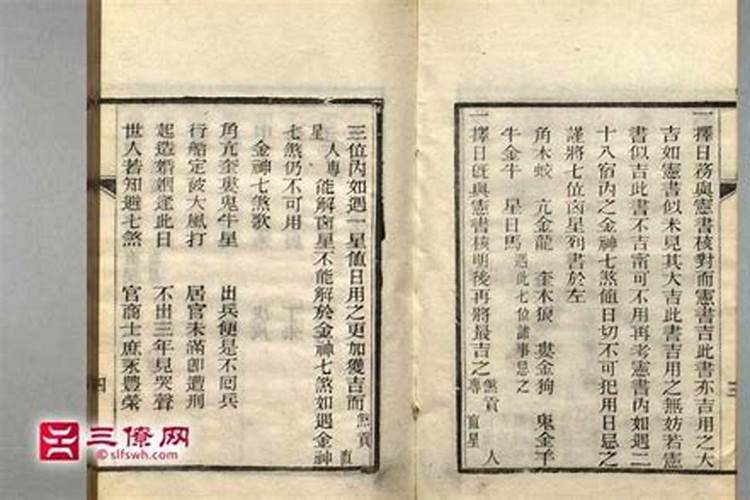 一擇日務與憲書核對而憲書吉此書亦吉用之大
吉如憲書似未見其大吉此書吉用之無妨若憲
書似吉此書不吉甯可不用再考憲書內如遇二
十八宿內之金神七煞值日切不可犯用日忌之
謹將七位凶星列書於左
角木蛟 亢金龍 奎木狼 婁金狗 鬼金羊
牛金牛 星日馬 遇此七位諸事忌之
一擇日既與憲書核明後再將最吉之煞貢專直星人
三
三位內如遇一星值日用之更加獲吉而煞貢直
星人專能解凶星不能解於金神七煞如遇金神
七煞仍不可用
金神七煞歌
角亢奎婁鬼牛星 出兵便是不回兵
行船定被大風打 居官未滿卽遭刑
起造婚姻逢此日 不出三年見哭聲
世人若知避七煞 官商士庶永豐榮
四
三僚网
©slfswh.com